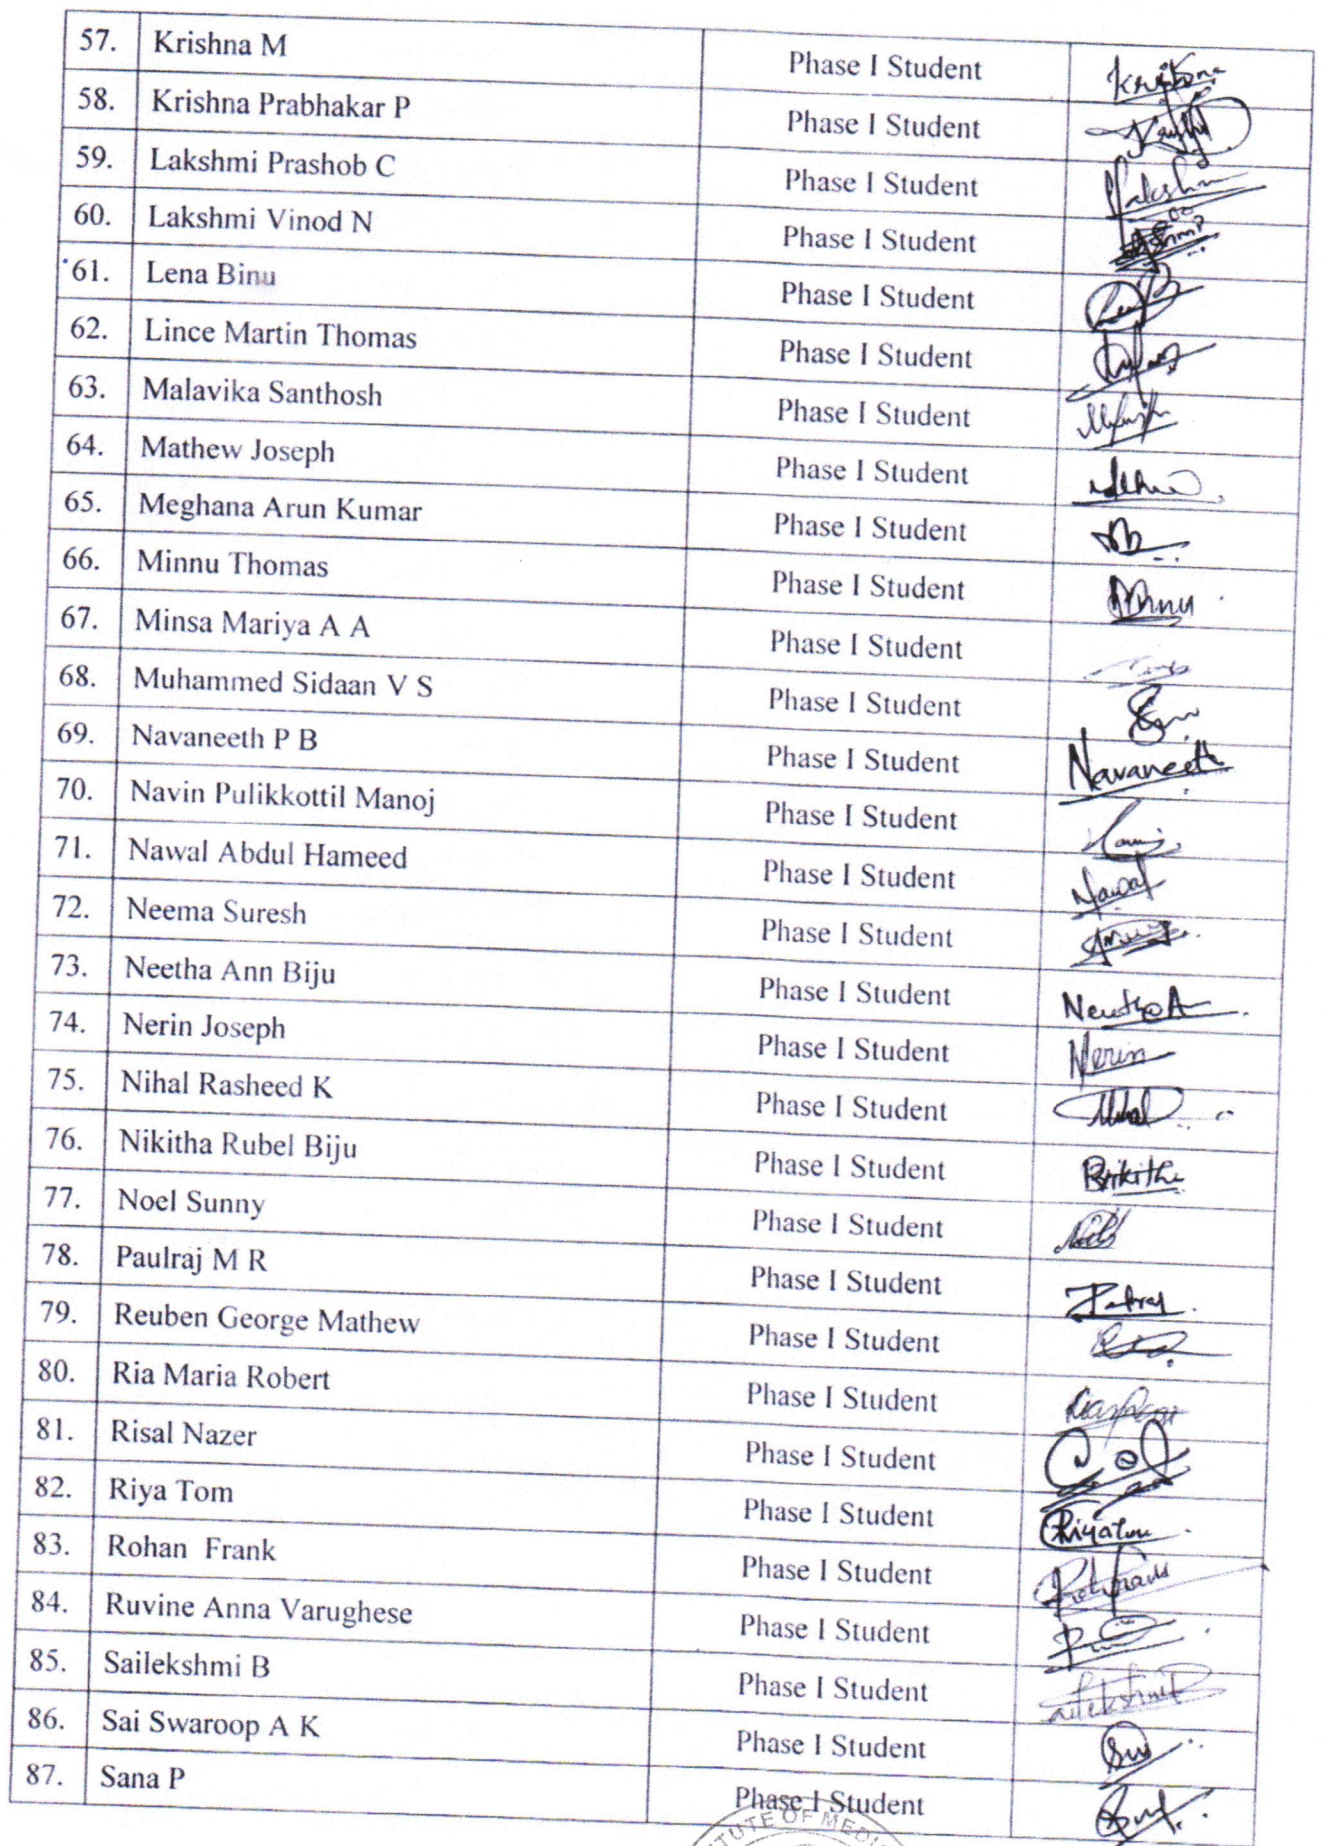 57. Krishna M Phase I Student Krishna
58. Krishna Prabhakar P Phase I Student
59. Lakshmi Prashob C Phase I Student Lakshmi
60. Lakshmi Vinod N Phase I Student
61. Lena Binu Phase I Student
62. Lince Martin Thomas Phase I Student
63. Malavika Santhosh Phase I Student
64. Mathew Joseph Phase I Student
65. Meghana Arun Kumar Phase I Student
66. Minnu Thomas Phase I Student Minnu
67. Minsa Mariya A A Phase I Student
68. Muhammed Sidaan V S Phase I Student
69. Navaneeth P B Phase I Student Navaneeth
70. Navin Pulikkottil Manoj Phase I Student
71. Nawal Abdul Hameed Phase I Student Nawal
72. Neema Suresh Phase I Student
73. Neetha Ann Biju Phase I Student
74. Nerin Joseph Phase I Student Nerin
75. Nihal Rasheed K Phase I Student Nihal
76. Nikitha Rubel Biju Phase I Student
77. Noel Sunny Phase I Student
78. Paulraj M R Phase I Student
79. Reuben George Mathew Phase I Student
80. Ria Maria Robert Phase I Student
81. Risal Nazer Phase I Student
82. Riya Tom Phase I Student Riyatom
83. Rohan Frank Phase I Student
84. Ruvine Anna Varughese Phase I Student
85. Sailekshmi B Phase I Student
86. Sai Swaroop A K Phase I Student
87. Sana P Phase I Student
OF